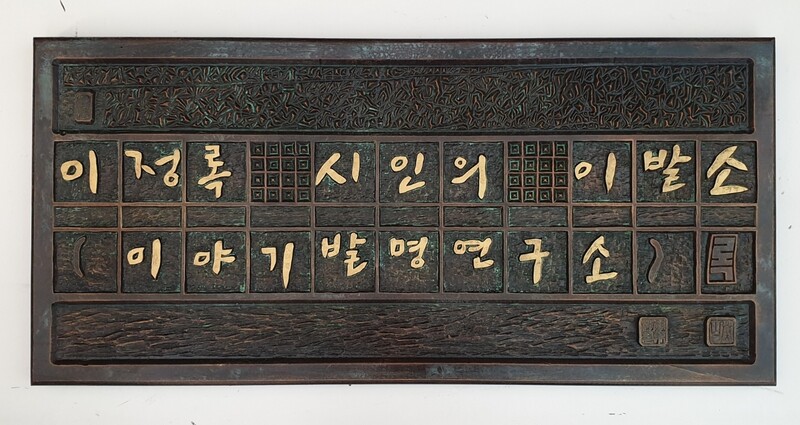 이정록 시인의 이발소
(이야기발명연구소) 록